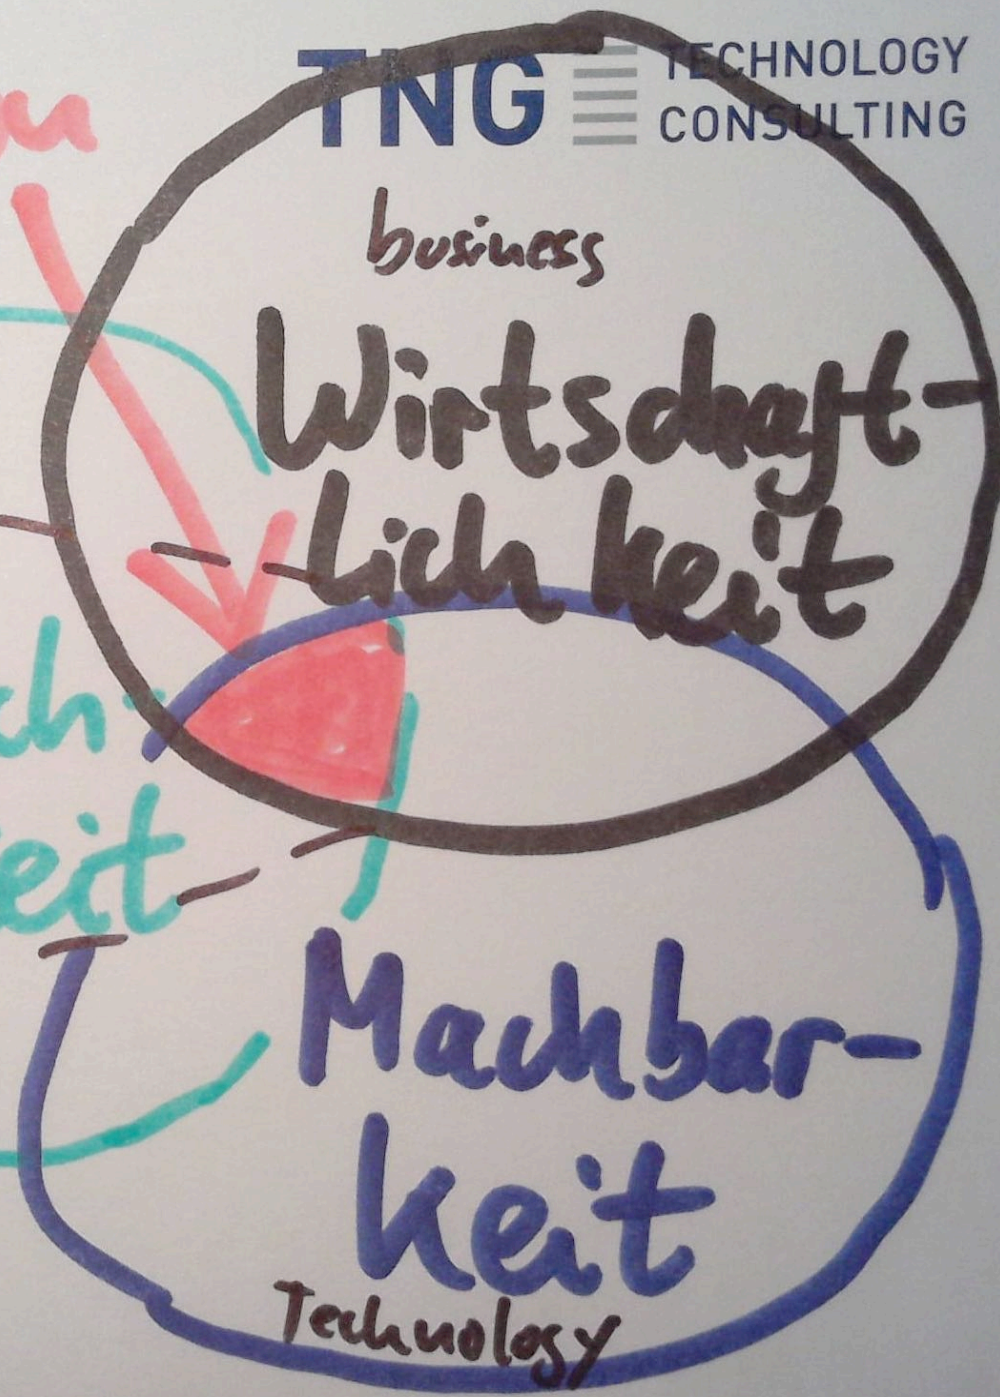 TNG TECHNOLOGY
CONSULTING
business
Wirtschaft-
lichkeit
Machbar-
keit
Technology